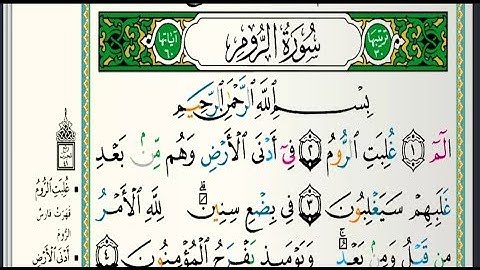 ترتيبها ٣٠ سُورَةُ الرُّومِ آياتها ٦٠
بِسْمِ ٱللَّهِ ٱلرَّحْمَٰنِ ٱلرَّحِيمِ
الٓمٓ ١ غُلِبَتِ ٱلرُّومُ ٢ فِىٓ أَدْنَى ٱلْأَرْضِ وَهُم مِّنۢ بَعْدِ
غَلَبِهِمْ سَيَغْلِبُونَ ٣ فِى بِضْعِ سِنِينَ ۗ لِلَّهِ ٱلْأَمْرُ
مِن قَبْلُ وَمِنۢ بَعْدُ ۚ وَيَوْمَئِذٍ يَفْرَحُ ٱلْمُؤْمِنُونَ ٤
غُلِبَتِ ٱلرُّومُ
قَهَرَتْ فَارِسُ
الرُّومَ
أَدْنَى ٱلْأَرْضِ